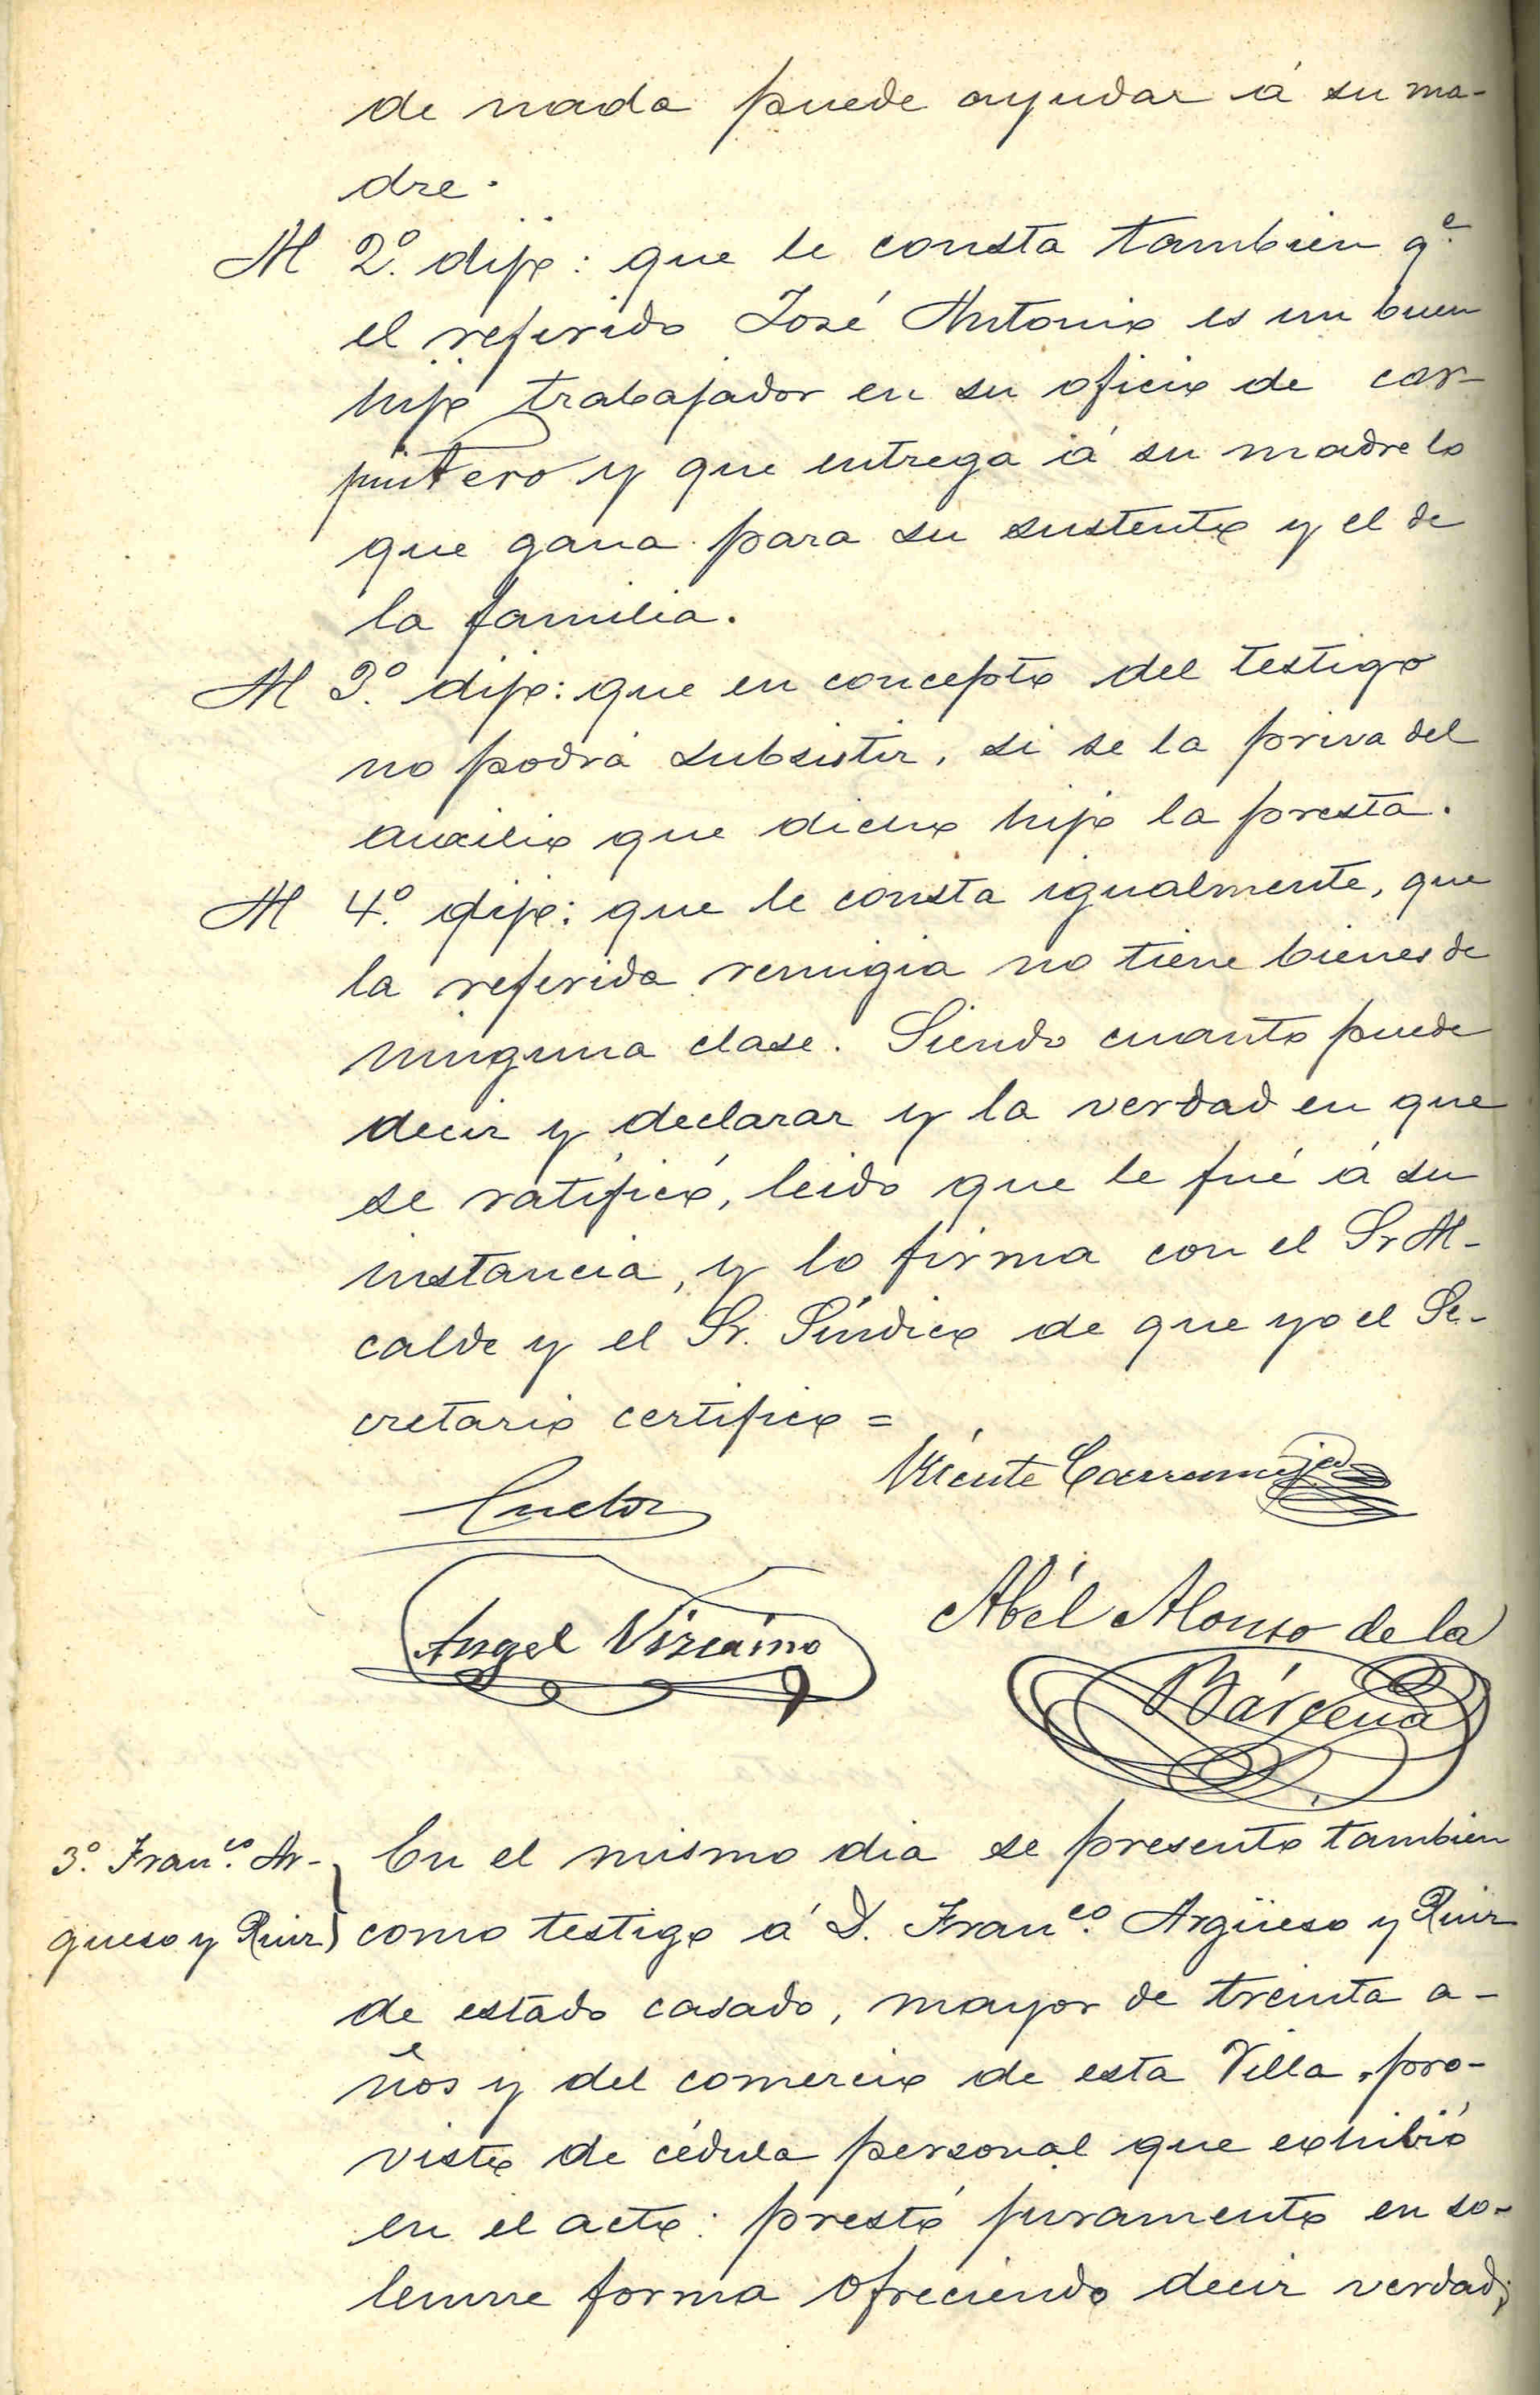 de nada puede ayudar á su ma-
dre.
Al 2º. dijo: que le consta tambien qe.
el referido José Antonio es un buen
hijo trabajador en su oficio de car-
pintero y que entrega á su madre lo
que gana para su sustento y el de
la familia.
Al 3º. dijo: que en concepto del testigo
no podrá subsistir, si se la priva del
auxilio que dicho hijo la presta.
Al 4º. dijo: que le consta igualmente, que
la referida remigia no tiene bienes de
ninguna clase. Siendo cuanto puede
decir y declarar y la verdad en que
se ratificó, leido que le fué á su
instancia, y lo firma con el Sr Al-
calde y el Sr. Síndico de que yo el Se-
cretario certifico =
Vicente
Cuetos
Angel Vizcaino
Abél Alonso de la
Bárcena
3º. Franco. Ar-
gueso y Ruiz
En el mismo dia se presentó tambien
como testigo á D. Franco. Argüeso y Ruiz
de estado casado, mayor de treinta a-
ños y del comercio de esta Villa, pro-
visto de cédula personal que exhibió
en el acto: prestó juramento en so-
lemne forma ofreciendo decir verdad;